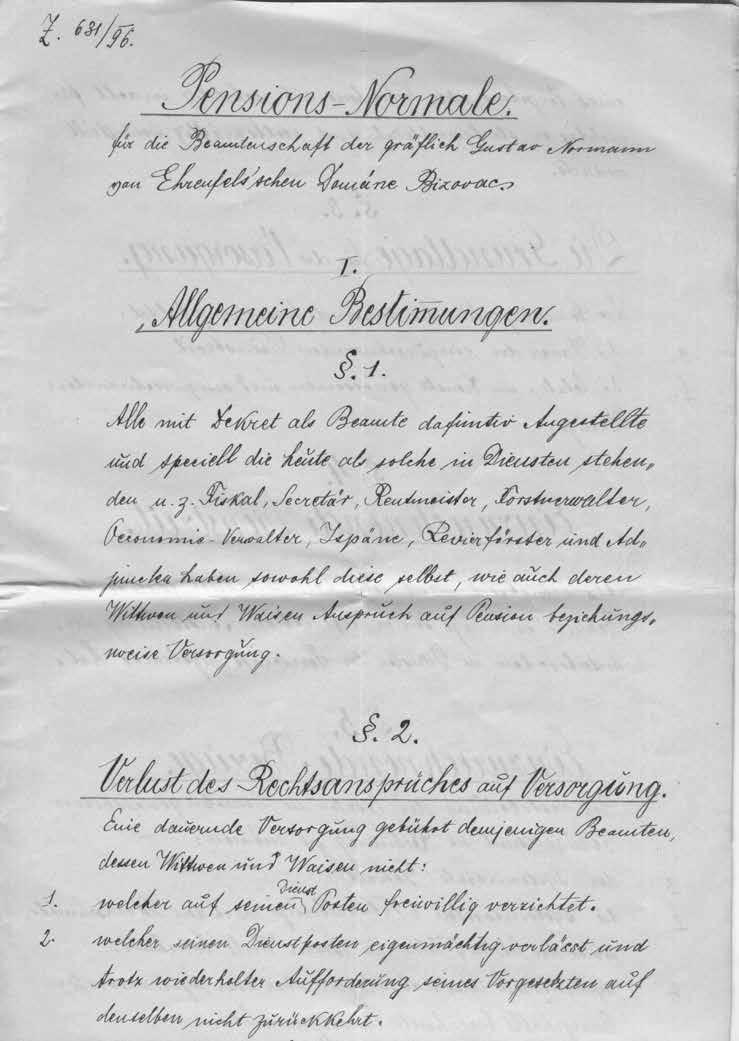 Z. 631/96.
Pensions-Normale.
für die Beamtenschaft der gräflich Gustav Normann
von Ehrenfels'schen Domäne Bizovac.
I.
Allgemeine Bestim̅ungen.
§. 1.
Alle mit Dekret als Beamte definitiv Angestellte
und speciell die heute als solche in Diensten stehen„
den u. z. Fiskal, Secretär, Rentmeister, Forstverwalter,
Oeconomie-Verwalter, Ispäne, Revierförster und Ad„
juncten haben sowohl diese selbst, wie auch deren
Wittwen und Waisen Anspruch auf Pension beziehungs„
weise Versorgung.
§. 2.
Verlust des Rechtsanspruches auf Versorgung.
Eine dauernde Versorgung gebührt demjenigen Beamten,
dessen Wittwen und Waisen nicht:
1. welcher auf seinen Dienst Posten freiwillig verzichtet.
2. welcher seinen Dienstposten eigenmächtig verlässt und
trotz wiederholter Aufforderung seines Vorgesetzten auf
denselben nicht zurückkehrt.